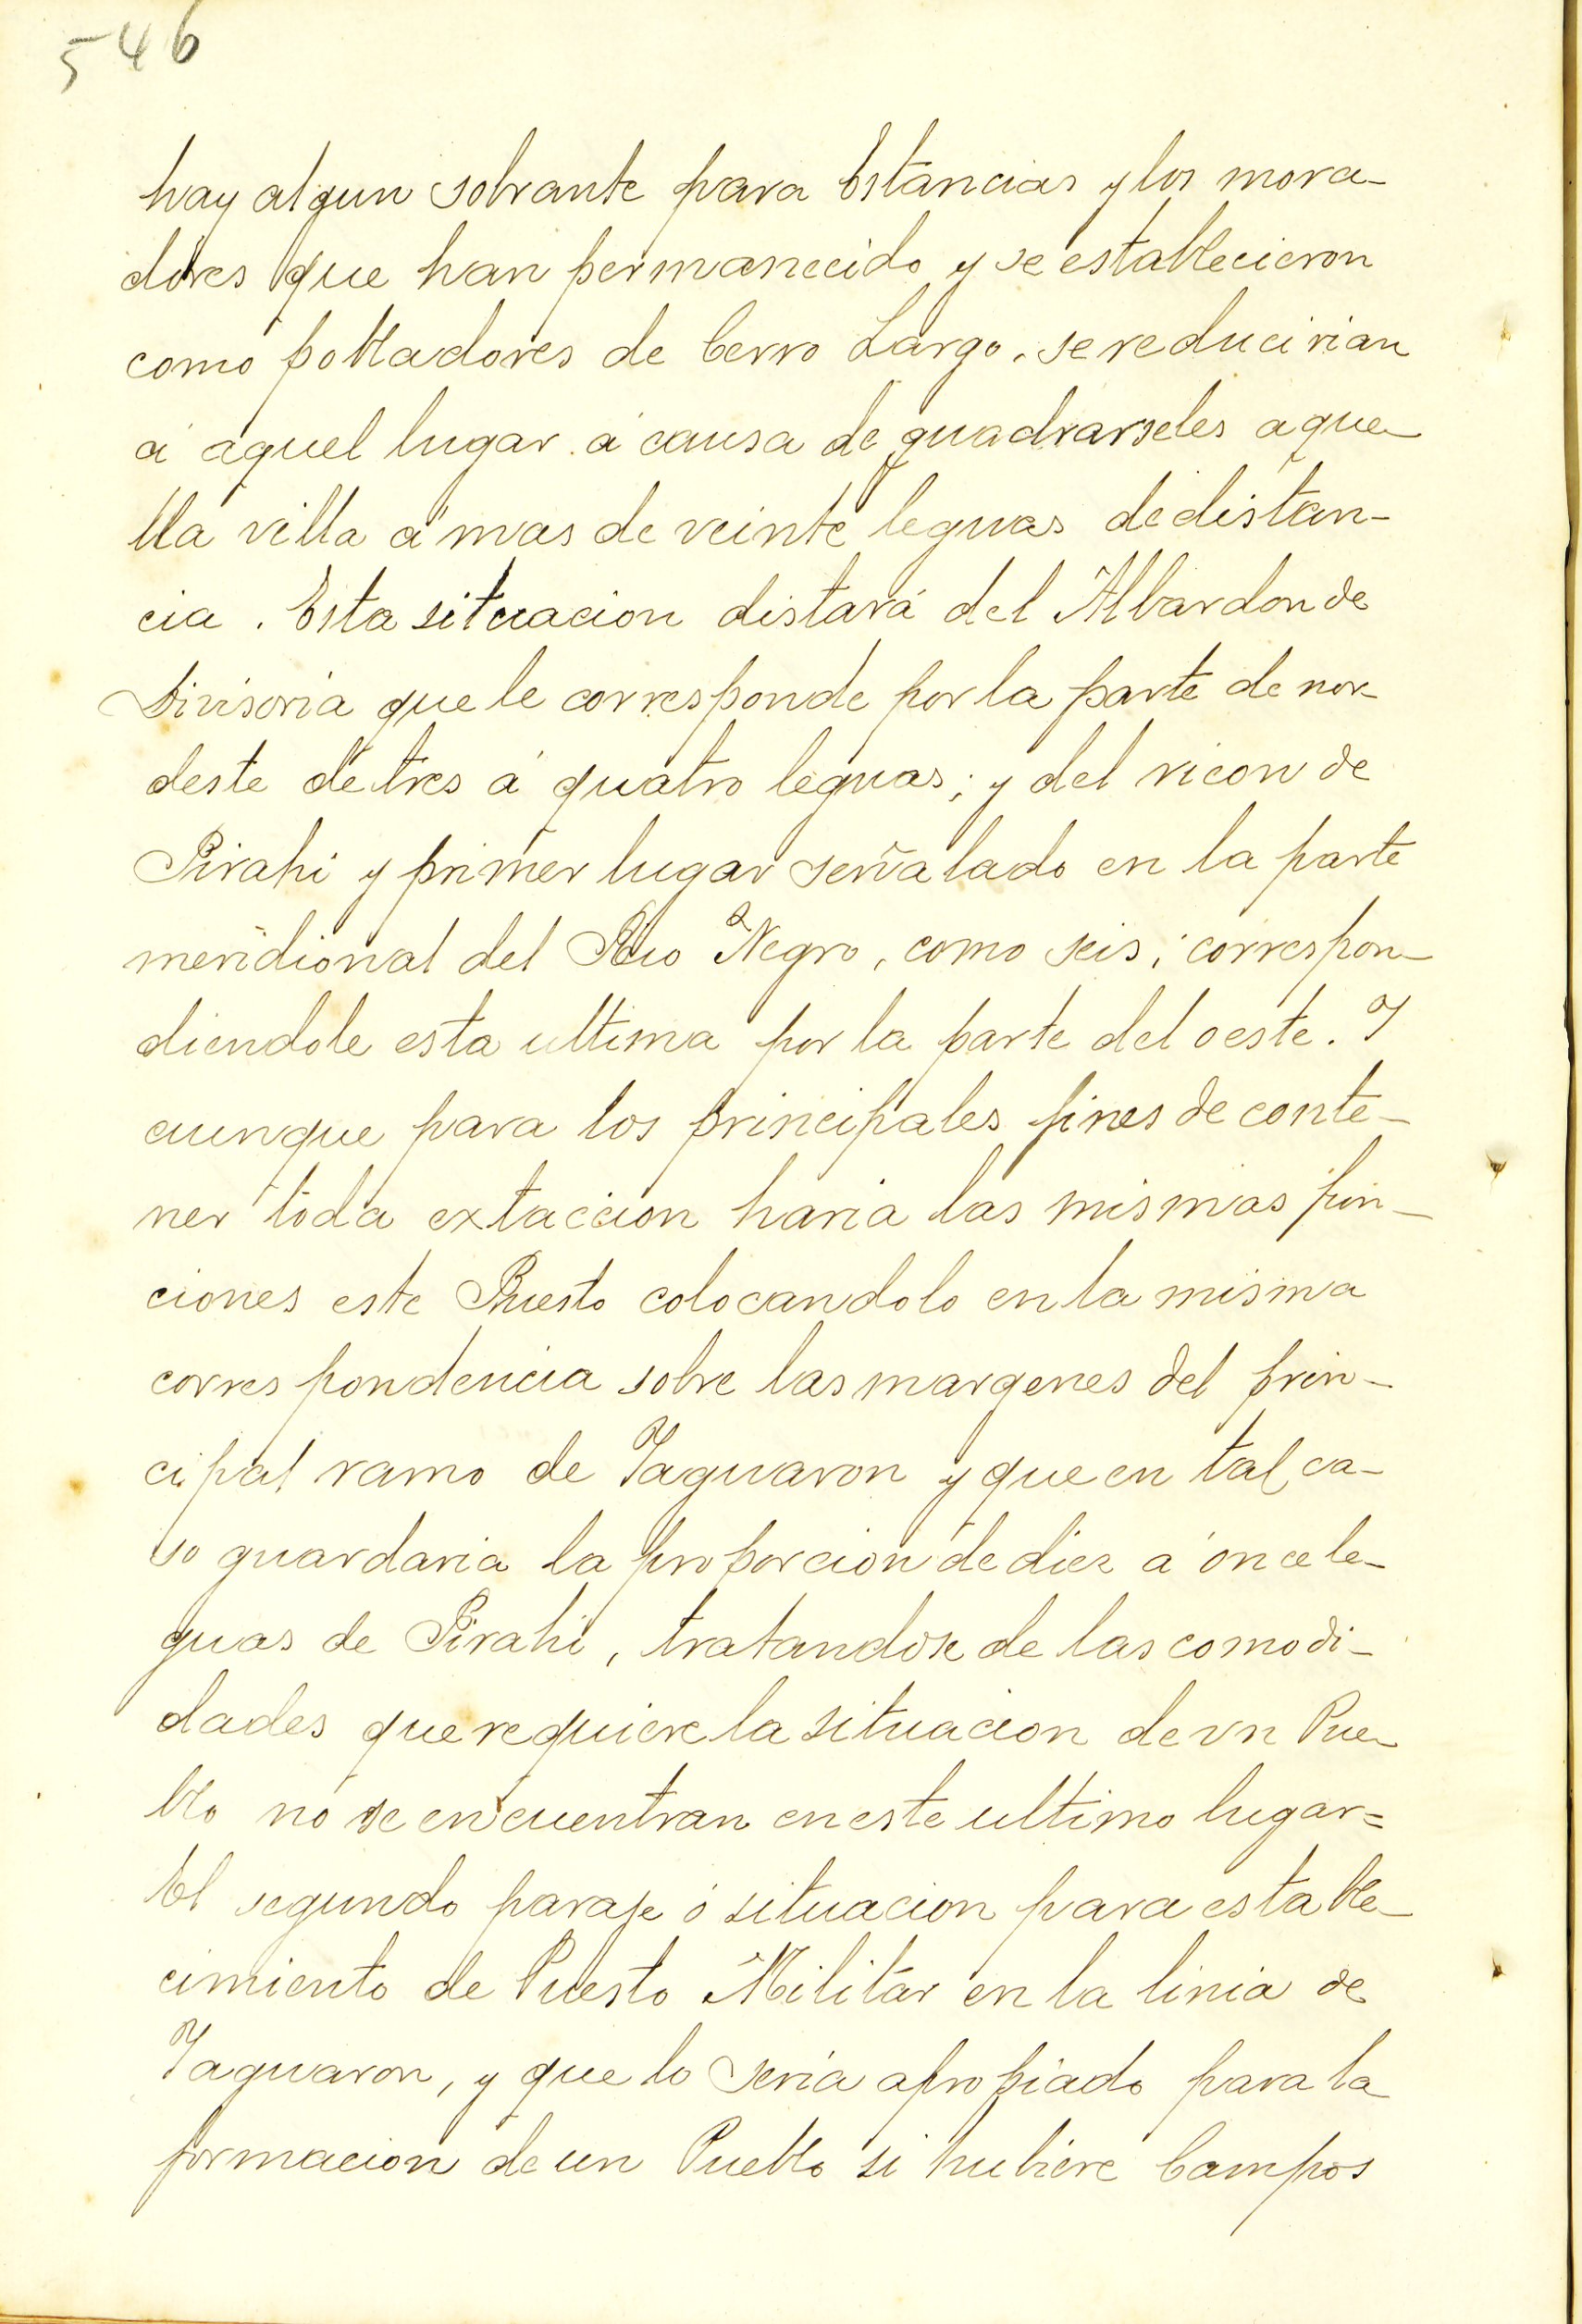 546
hay algun sobrante para Estancias y los mora-
dores que han permanecido y se establecieron
como pobladores de Cerro Largo, se reducirian
á aquel lugar á causa de quadrarseles aque-
lla villa á mas de veinte leguas de distan-
cia. Esta situacion distará del Albardon de
Divisoria que le corresponde por la parte de nor-
deste de tres á quatro leguas; y del ricon de
Pirahi y primer lugar señalado en la parte
meridional del Rio Negro, como seis; correspon-
diendole esta ultima por la parte del oeste. Y
aunque para los principales fines de conte-
ner toda extaccion haria las mismas fun-
ciones este Puesto colocandolo en la misma
correspondencia sobre las margenes del prin-
cipal ramo de Yaguaron y que en tal ca-
so guardaria la proporcion de diez a once le-
guas de Pirahi, tratandose de las comodi-
dades que requiere la situacion de vn Pue-
blo no se encuentran en este ultimo lugar=
El segundo paraje ó situacion para estable-
cimiento de Puesto Militar en la linia de
Yaguaron, y que lo seria apropiado para la
formacion de un Pueblo si hubiere Campos